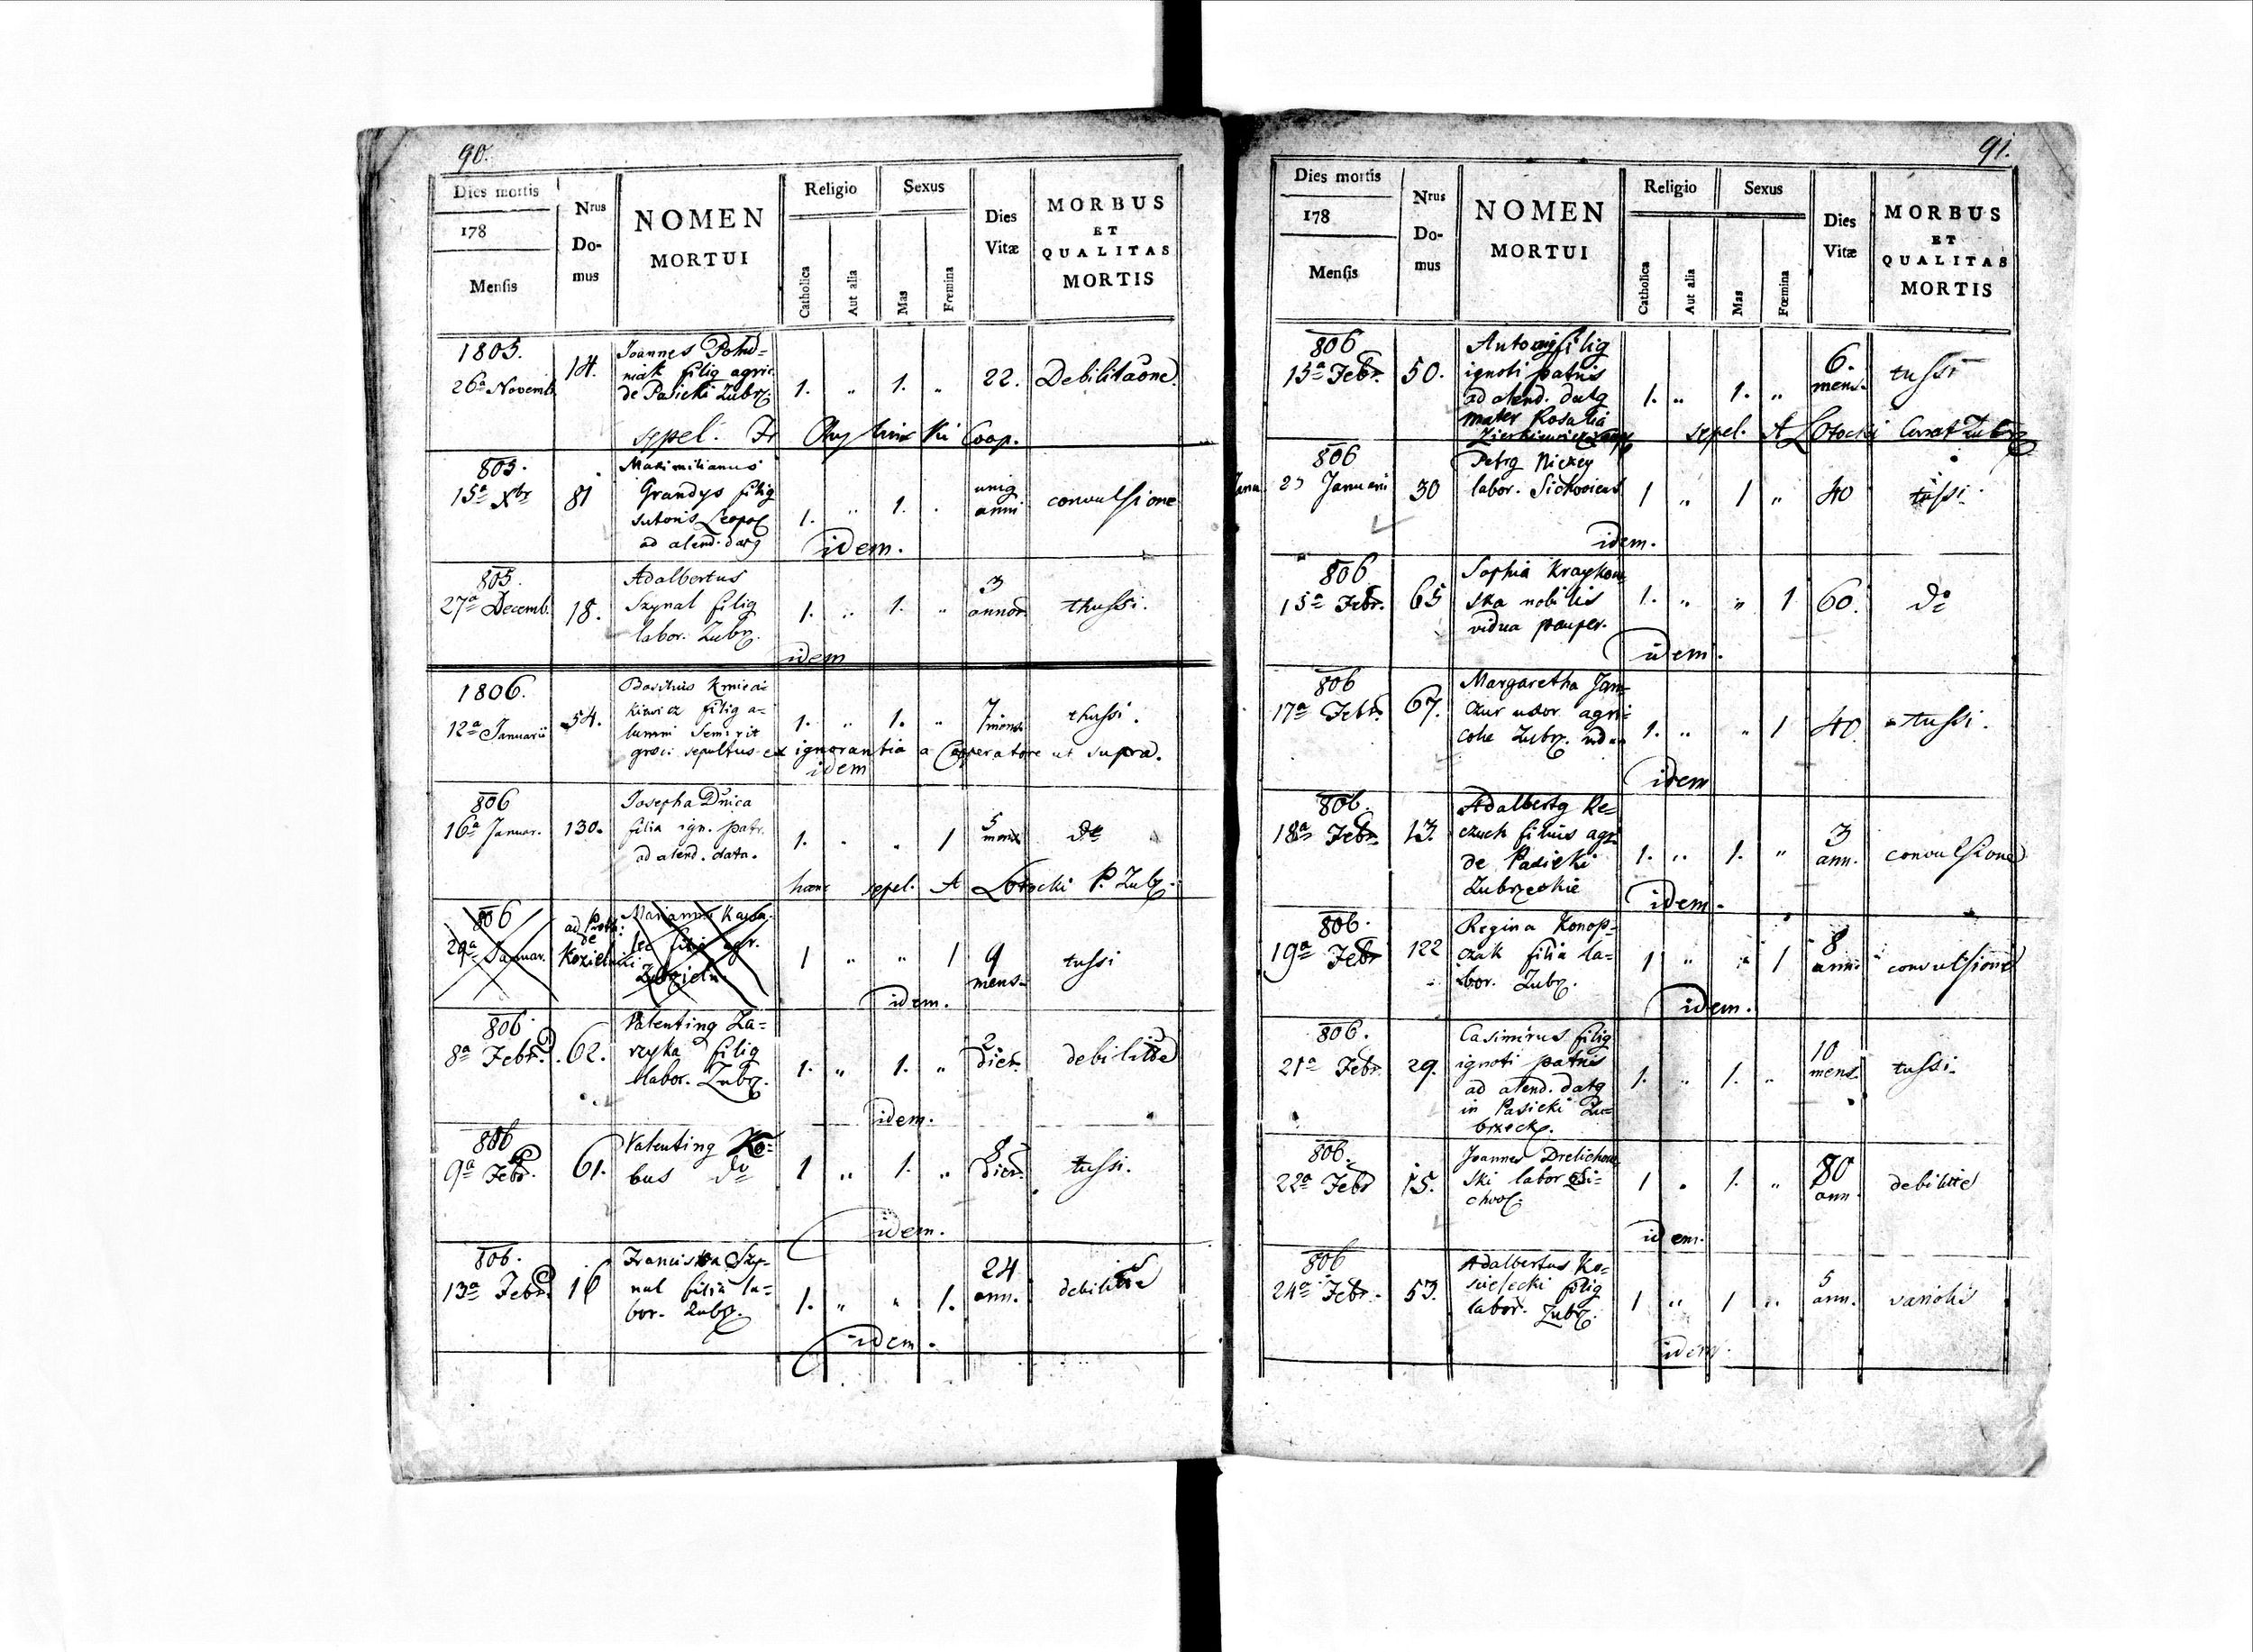 90.
Dies mortis
178
Mensis
Nrus
Do-
mus
NOMEN
MORTUI
Religio
Catholica
Aut alia
Sexus
Mas
Fœmina
Dies
Vitæ
MORBUS
ET
QUALITAS
MORTIS
1805.
26a Novemb.
14.
Joannes
filig agric.
de Pasieki Zubrz.
1. „ 1. „
22.
Debilitaõne
sepel. Fr Coop.
805.
15a Xbr
81
Maximilianus
Grandys filig
sutoris Leopol
ad alend. datg
1. „ 1. .
unig
anni
convulsione
idem.
805.
27a Decemb.
18.
Adalbertus
Szynal filig
labor. Zubrz.
1. „ 1. „
3
annor.
thussi.
idem
1806.
12a Januarii
54.
kiewicz filig a-
lumni Sem. rit
grœci sepultus ex ignorantia a Cooperatore ut supra.
1. „ 1. „
7
mens.
thussi.
idem
806
16a Januar.
130.
Josepha Dnica
filia ign. patr.
ad alend. data.
1. . „ 1
5
mens.
do
hanc sepel. A Lotocki P. Zubrz.
806
29a Januar.
ad
de
Kozielniki
Marianna
filia agr.
1 „ „ 1
9
mens.
tussi
idem.
806.
8a Febr.
62.
Valenting Za=
rzyka filig
labor. Zubrz.
1. „ 1. „
2
dier.
debilitte
idem.
806
9a Febr.
61.
Valenting Ko=
bus do
1 „ 1. „
8
dier.
tussi.
idem.
806.
13a Febr.
16
Franciska Szy-
nal filia la=
bor. Zubrz.
1. „ „ 1.
24
ann.
debilitte
idem.
91.
Dies mortis
178
Mensis
Nrus
Do-
mus
NOMEN
MORTUI
Religio
Catholica
Aut alia
Sexus
Mas
Fœmina
Dies
Vitæ
MORBUS
ET
QUALITAS
MORTIS
806
15a Febr.
50.
filig
ignoti patris
ad alend. datg
mater Rosalia
1. „ 1. „
6.
mens.
tussi
sepel. A Lotocki Zubrz
806
Januarii
30
Petrg
labor. Sichoviens
1 „ 1 „
40
tussi.
idem.
806
15a Febr.
65
Sophia Kraykow
ska nobilis
vidua pauper.
1. „ „ 1
60.
do
idem.
806
17a Febr.
67.
Margaretha Jan-
czur uxor agri-
colæ Zubrz.
1. „ „ 1
40
tussi.
idem
806.
18a Febr.
13.
Adalbertg Re-
czuch filius agr.
de Pasieki
Zubrzeckie
1. „ 1. „
3
ann.
convulsione
idem.
806.
19a Febr
122
Regina Konop-
czak filia la-
bor. Zubrz.
1 „ „ 1
8
anni
convulsione
idem.
806.
21a Febr.
29.
Casimirus filig
ignoti patris
ad alend. datg
in Pasieki Zu=
brzeck.
1. „ 1. „
10
mens.
tussi.
806.
22a Febr
15.
Joannes Drelichow
ski labor Si-
chov.
1 . 1. „
80
ann.
debilitte
idem.
806
24a Febr.
53.
Adalbertus Ko-
sielecki filig
labor. Zubrz.
1 „ 1 „
5
ann.
variolis
idem.